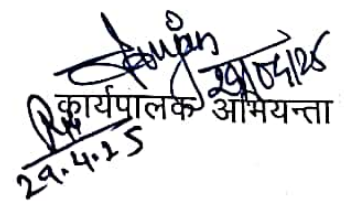 29/04/25
कार्यपालक अभियन्ता
29.4.25